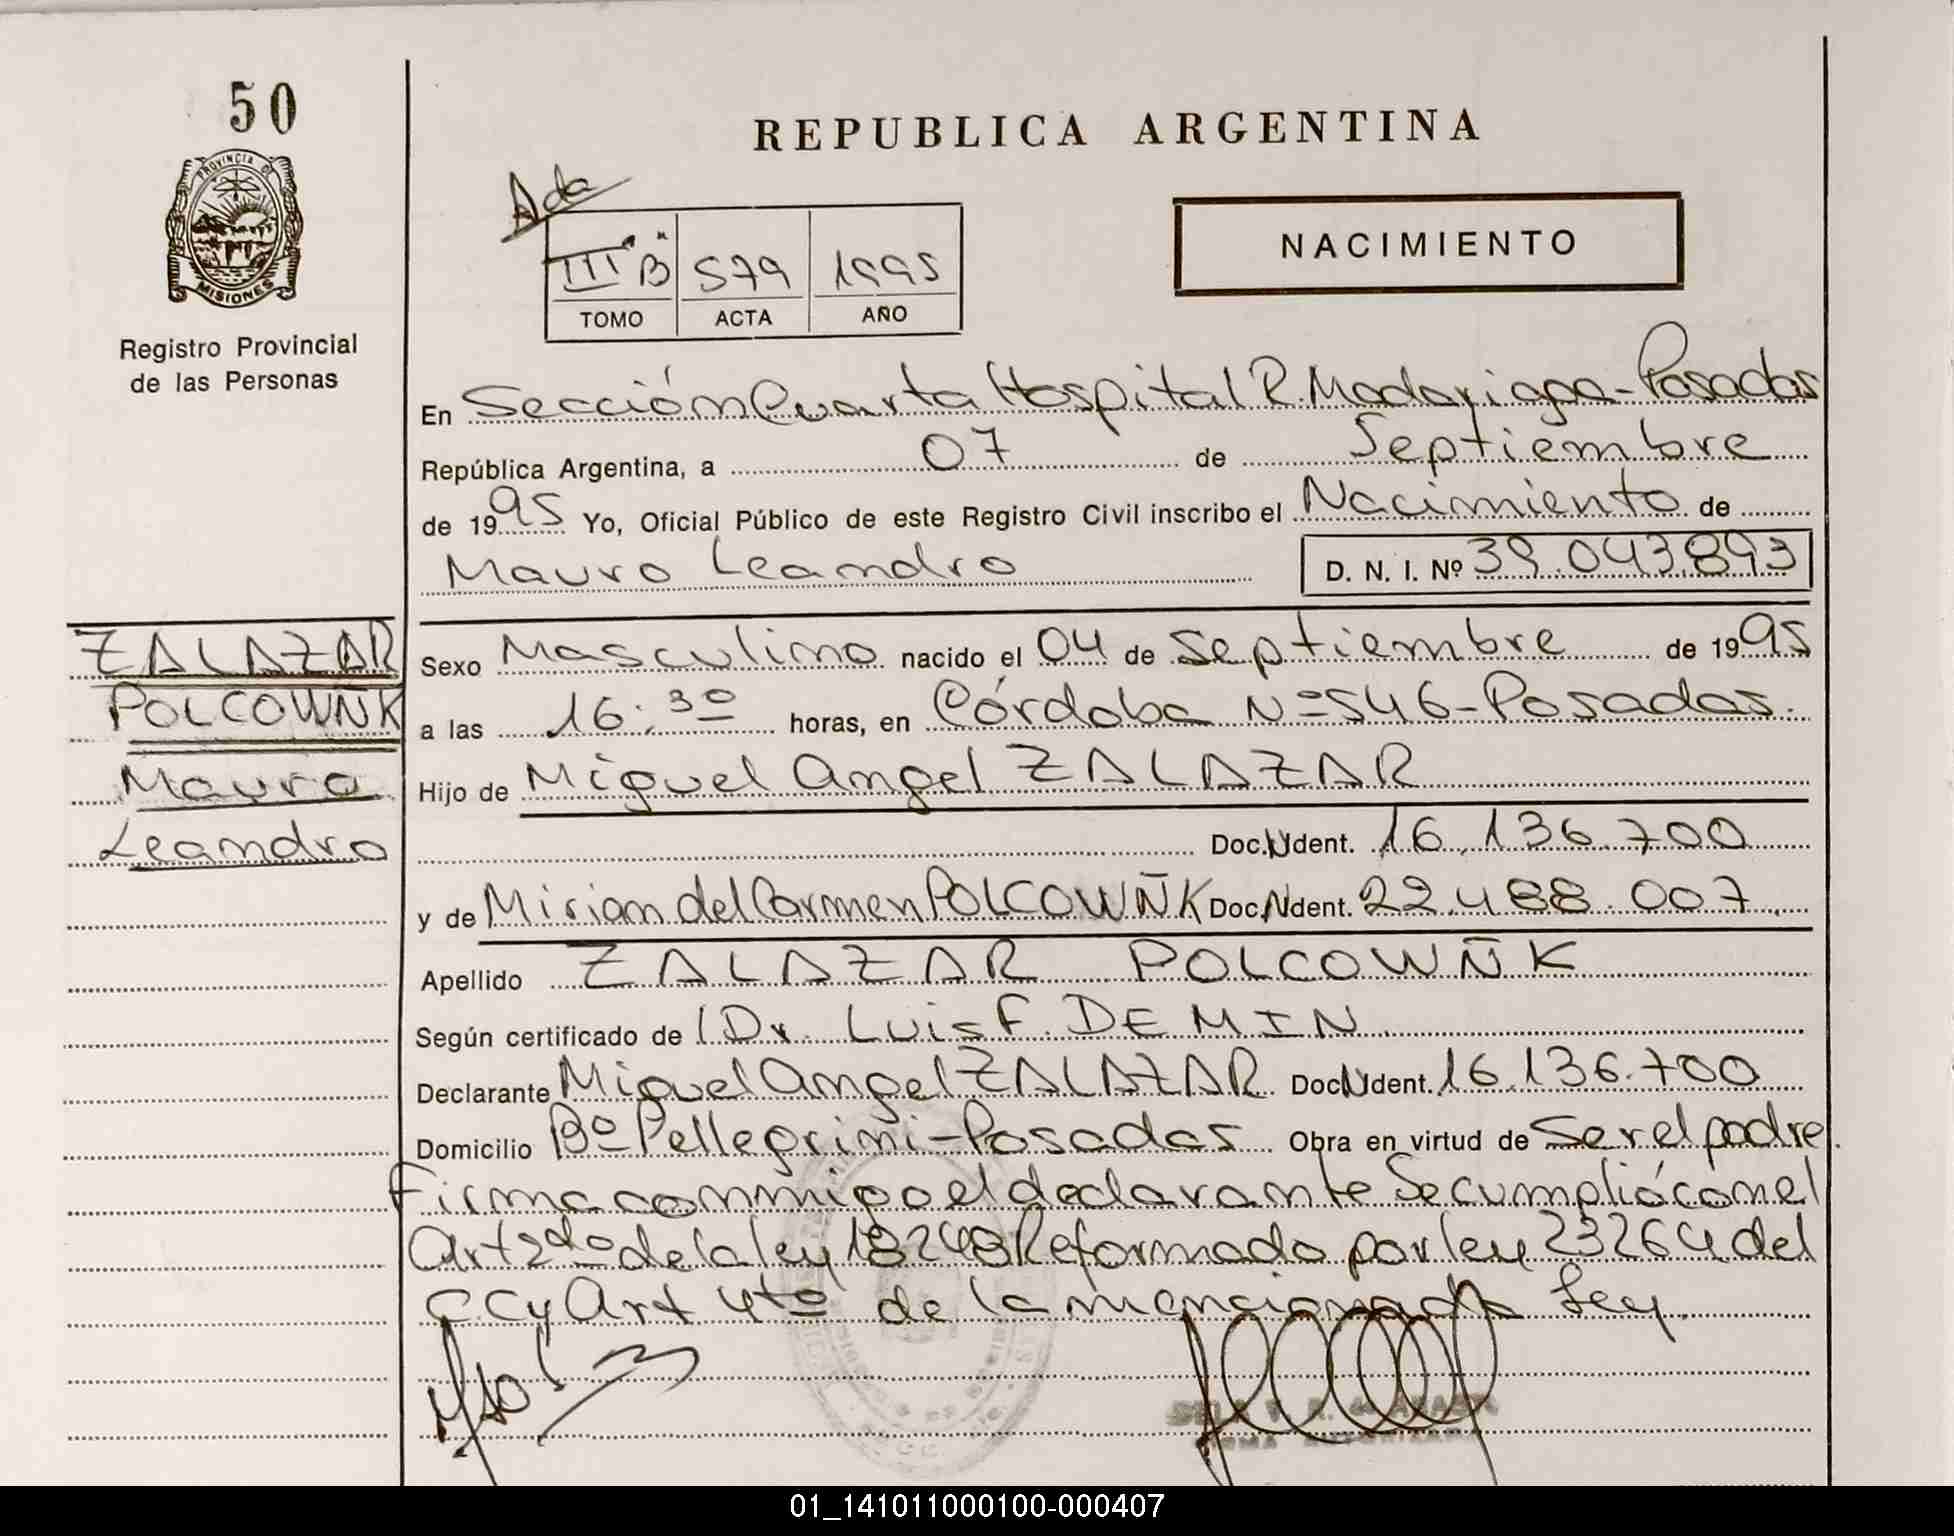 50
REPUBLICA ARGENTINA
PROVINCIA DE
MISIONES
Registro Provincial
de las Personas
III "B" 579 1995
TOMO ACTA AÑO
NACIMIENTO
En Sección Cuarta Hospital R. Madariaga - Posadas
República Argentina, a 07 de Septiembre
de 1995 Yo, Oficial Público de este Registro Civil inscribo el Nacimiento de
Mauro Leandro D. N. I. Nº 39.043.893
ZALAZAR
POLCOWÑK
Mauro
Leandro
Sexo Masculino nacido el 04 de Septiembre de 1995
a las 16:30 horas, en Córdoba Nº 546 - Posadas.
Hijo de Miguel Angel ZALAZAR
Doc. Ident. 16.136.700
y de Mirian del Carmen POLCOWÑK Doc. Ident. 22.488.007
Apellido ZALAZAR POLCOWÑK
Según certificado de Dr. Luis F. DEMIN
Declarante Miguel Angel ZALAZAR Doc. Ident. 16.136.700
Domicilio Bº Pellegrini - Posadas Obra en virtud de Ser el padre.
Firma conmigo el declarante Se cumplió con el
Art 2do de la ley 18248 Reformado por ley 23264 del
C.C y Art 4to de la mencionada Ley.
01_141011000100-000407